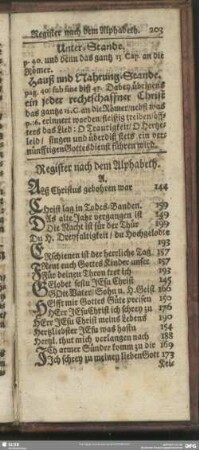 Register nach dem Alphabeth. 203
Unter-Stande.
p. 40. und denn das gantz 13 Cap. an die
Römer.
Hauß und Nahrungs-Stande.
pag. 40. biß 97. Dabey übrigens
ein jeder rechtschaffner Christ
das gantz 12. C. an die Römer
erinnert worden fleißig treiben
das Lied: O Traurigkeit! O Hertze-
leid! singen und überdiß stets ein ver-
nünfftigen Gottesdienst führen wird.
Register nach dem Alphabeth.
A.
Als Christus gebohren war 144
Christ lag in Todes-Banden. 159
Das alte Jahr vergangen ist 149
Die Nacht ist für der Thür 199
Du H. Dreyfaltigkeit / du Hochgelobte
193
Erschienen ist der herrliche Tag. 157
Freut euch Gottes Kinder 157
Für deinen Thron tret ich 193
Gelobet seyst JEsu Christ 145
GOtt Vater, Sohn u. H. Geist 160
Helfft mir Gottes Güte preisen 150
HErr JEsu Christ ich schrey zu 176
HErr JEsu Christ meins Lebens 190
Hertzliebster JEsu was hastu 154
Hertzl. thut mich verlangen nach 188
Ich armer Sünder komm zu dir 169
Ich schrey zu meinem lieben Gott 173